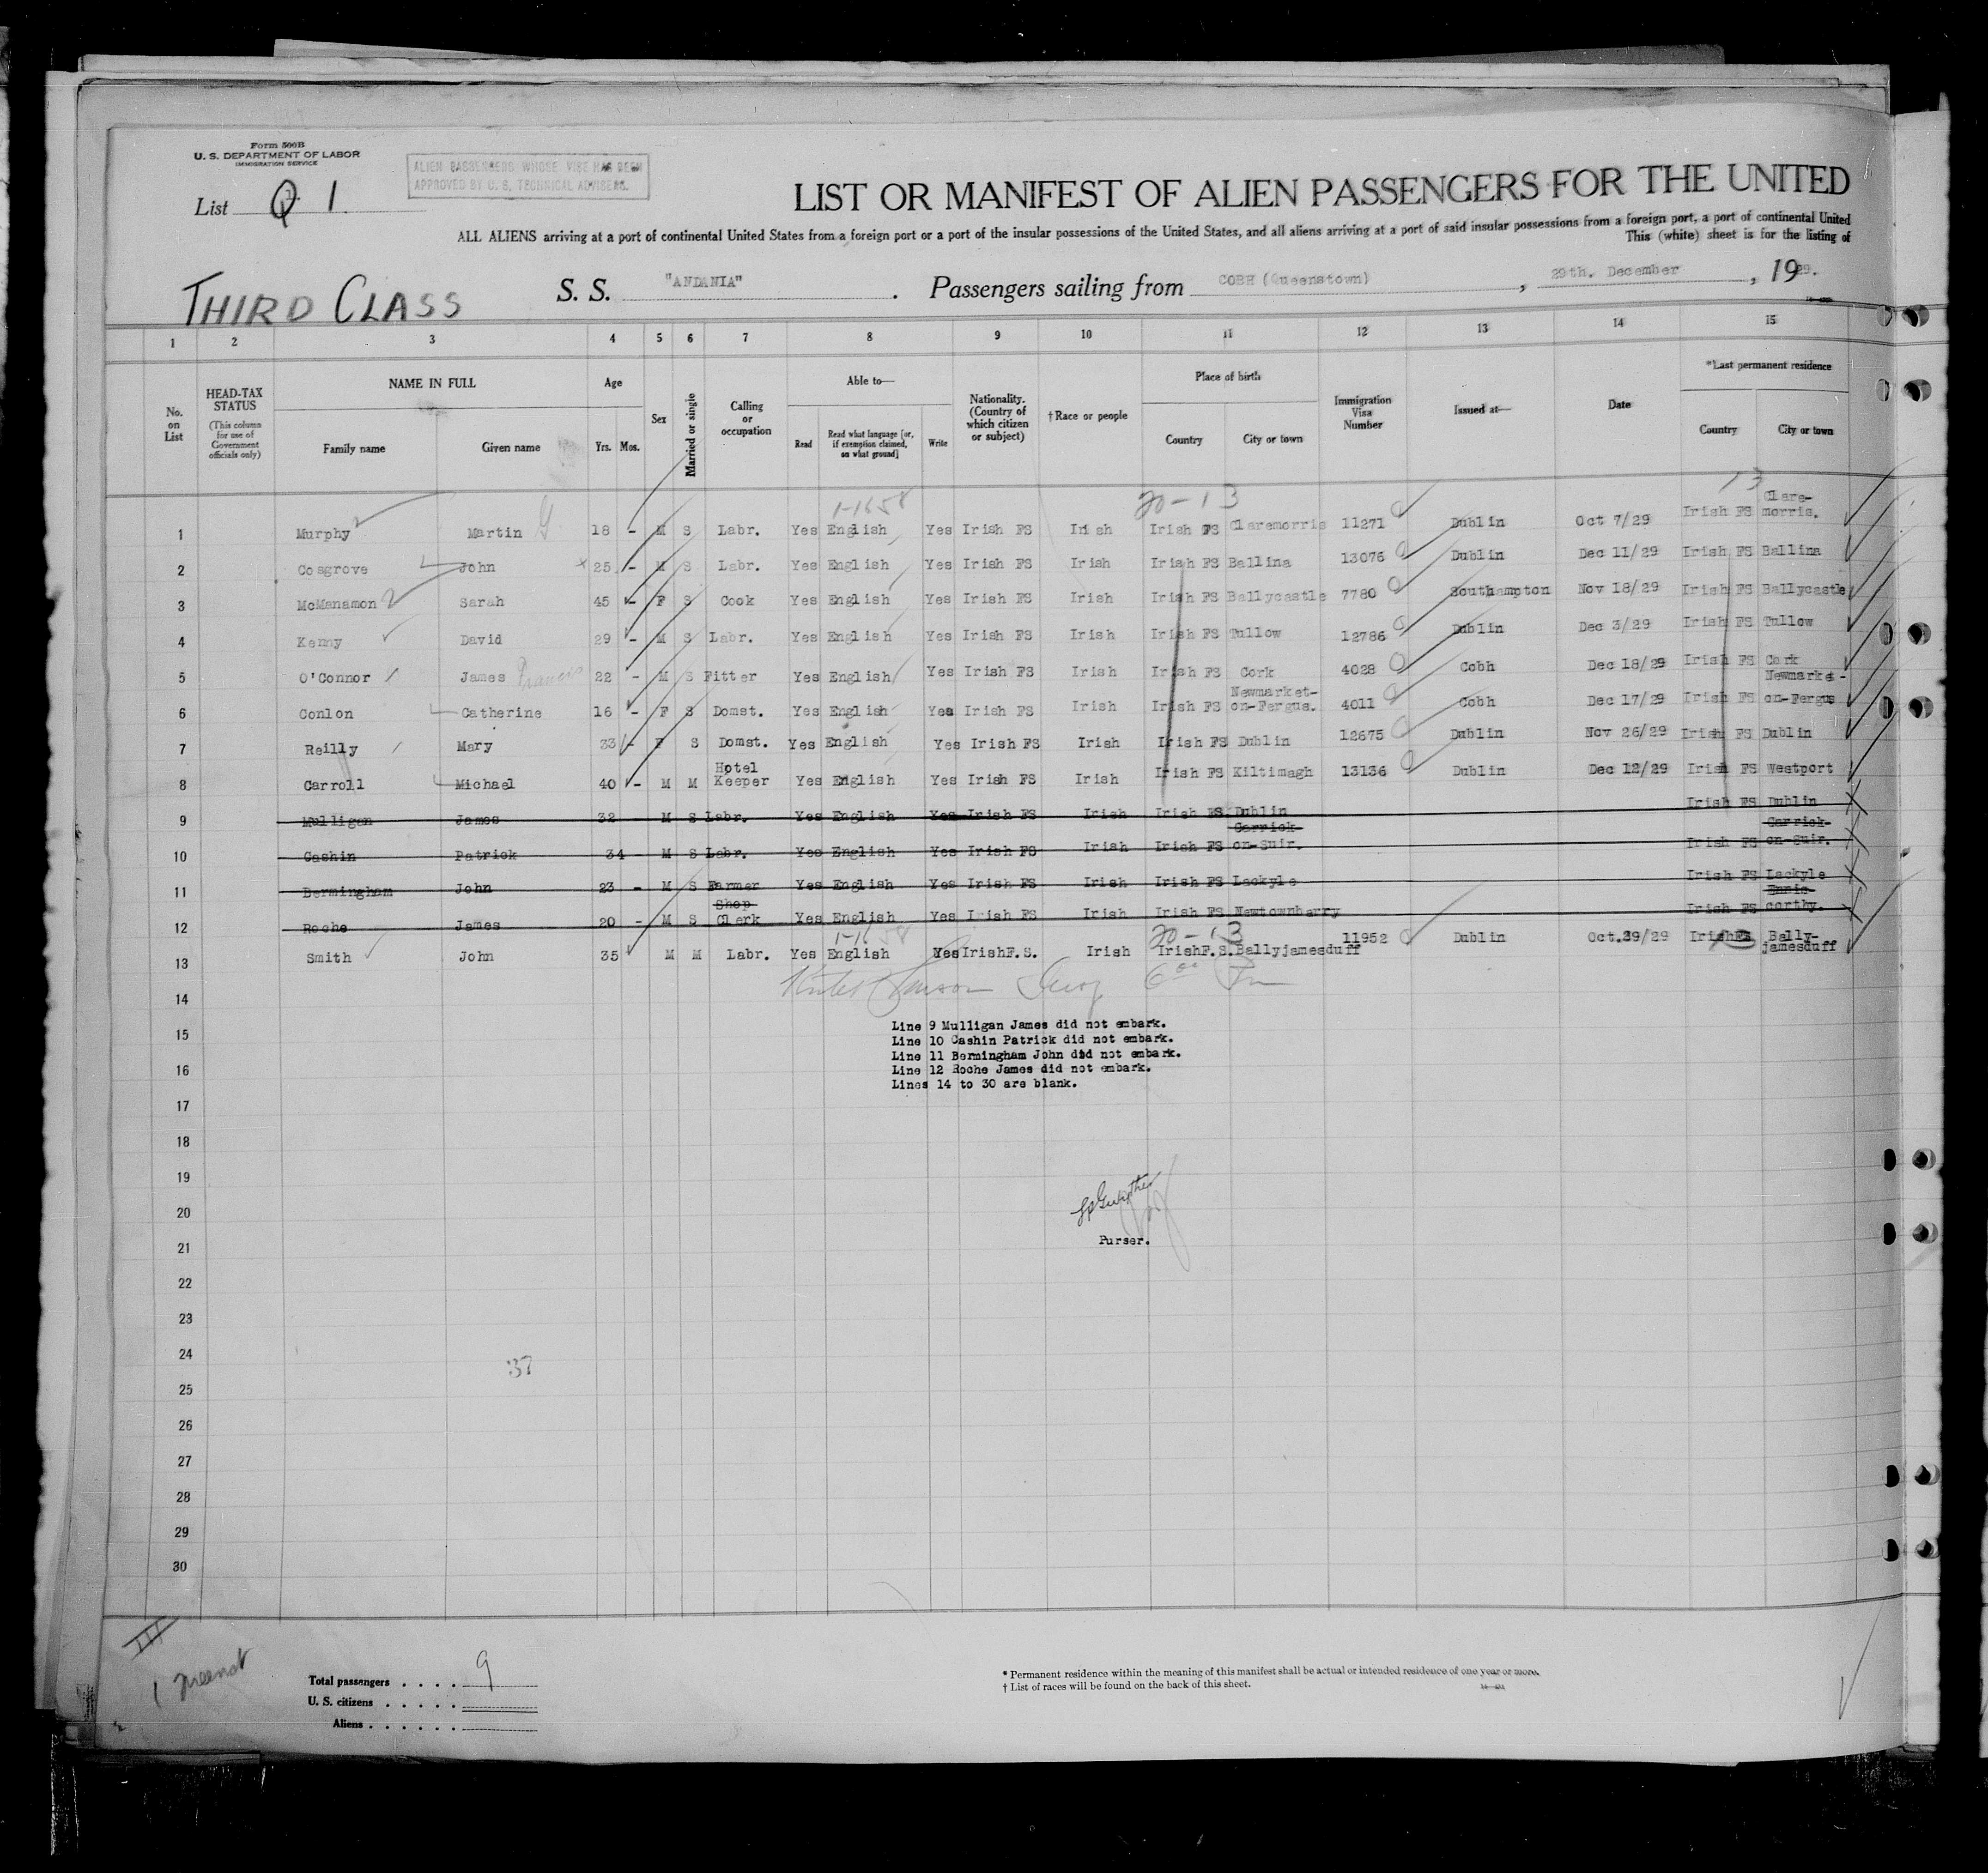 Form 500B
U. S. DEPARTMENT OF LABOR
IMMIGRATION SERVICE
ALIEN PASSENGERS WHOSE VISE HAS BEEN
APPROVED BY U. S. TECHNICAL ADVISERS.
List Q 1.
LIST OR MANIFEST OF ALIEN PASSENGERS FOR THE UNITED
ALL ALIENS arriving at a port of continental United States from a foreign port or a port of the insular possessions of the United States, and all aliens arriving at a port of said insular possessions from a foreign port, a port of continental United
This (white) sheet is for the listing of
THIRD CLASS
S. S. "ANDANIA". Passengers sailing from COBH (Queenstown), 29th. December, 1929.
1 2 3 4 5 6 7 8 9 10 11 12 13 14 15
No. on List
HEAD-TAX STATUS (This column for use of Government officials only)
NAME IN FULL Family name Given name
Age Yrs. Mos.
Sex
Married or single
Calling or occupation
Able to— Read Read what language [or, if exemption claimed, on what ground] Write
Nationality. (Country of which citizen or subject)
†Race or people
Place of birth Country City or town
Immigration Visa Number
Issued at—
Date
*Last permanent residence Country City or town
1-1658 20-13 13
1 Murphy Martin G 18 - M S Labr. Yes English Yes Irish FS Irish Irish FS Claremorris 11271 Dublin Oct 7/29 Irish FS Clare-morris.
2 Cosgrove John 25 - M S Labr. Yes English Yes Irish FS Irish Irish FS Ballina 13076 Dublin Dec 11/29 Irish FS Ballina
3 McManamon Sarah 45 - F S Cook Yes English Yes Irish FS Irish Irish FS Ballycastle 7780 Southampton Nov 18/29 Irish FS Ballycastle
4 Kenny David 29 - M S Labr. Yes English Yes Irish FS Irish Irish FS Tullow 12786 Dublin Dec 3/29 Irish FS Tullow
5 O'Connor James Francis 22 - M S Fitter Yes English Yes Irish FS Irish Irish FS Cork 4028 Cobh Dec 18/29 Irish FS Cork
6 Conlon Catherine 16 - F S Domst. Yes English Yes Irish FS Irish Irish FS Newmarket-on-Fergus. 4011 Cobh Dec 17/29 Irish FS Newmarket-on-Fergus
7 Reilly Mary 33 - F S Domst. Yes English Yes Irish FS Irish Irish FS Dublin 12675 Dublin Nov 26/29 Irish FS Dublin
8 Carroll Michael 40 - M M Hotel Keeper Yes English Yes Irish FS Irish Irish FS Kiltimagh 13136 Dublin Dec 12/29 Irish FS Westport
9 Mulligan James 32 M S Labr. Yes English Yes Irish FS Irish Irish FS Dublin Irish FS Dublin
10 Cashin Patrick 34 M S Labr. Yes English Yes Irish FS Irish Irish FS Carrick-on-Suir. Irish FS Carrick-on-Suir.
11 Bermingham John 23 - M S Farmer Yes English Yes Irish FS Irish Irish FS Lackyle Irish FS Lackyle
12 Roche James 20 - M S Shop Clerk Yes English Yes Irish FS Irish Irish FS Newtownbarry Irish FS Ennis-corthy.
1-1658 20-13
13 Smith John 35 M M Labr. Yes English Yes IrishF.S. Irish IrishF.S. Ballyjamesduff 11952 Dublin Oct.29/29 IrishFS Bally-jamesduff
14
Line 9 Mulligan James did not embark.
15
Line 10 Cashin Patrick did not embark.
Line 11 Bermingham John did not embark.
16
Line 12 Roche James did not embark.
Lines 14 to 30 are blank.
17
18
19
20
21
Purser.
22
23
24
37
25
26
27
28
29
30
III
Total passengers . . . . 9
U. S. citizens . . . . .
Aliens . . . . . .
* Permanent residence within the meaning of this manifest shall be actual or intended residence of one year or more.
† List of races will be found on the back of this sheet.